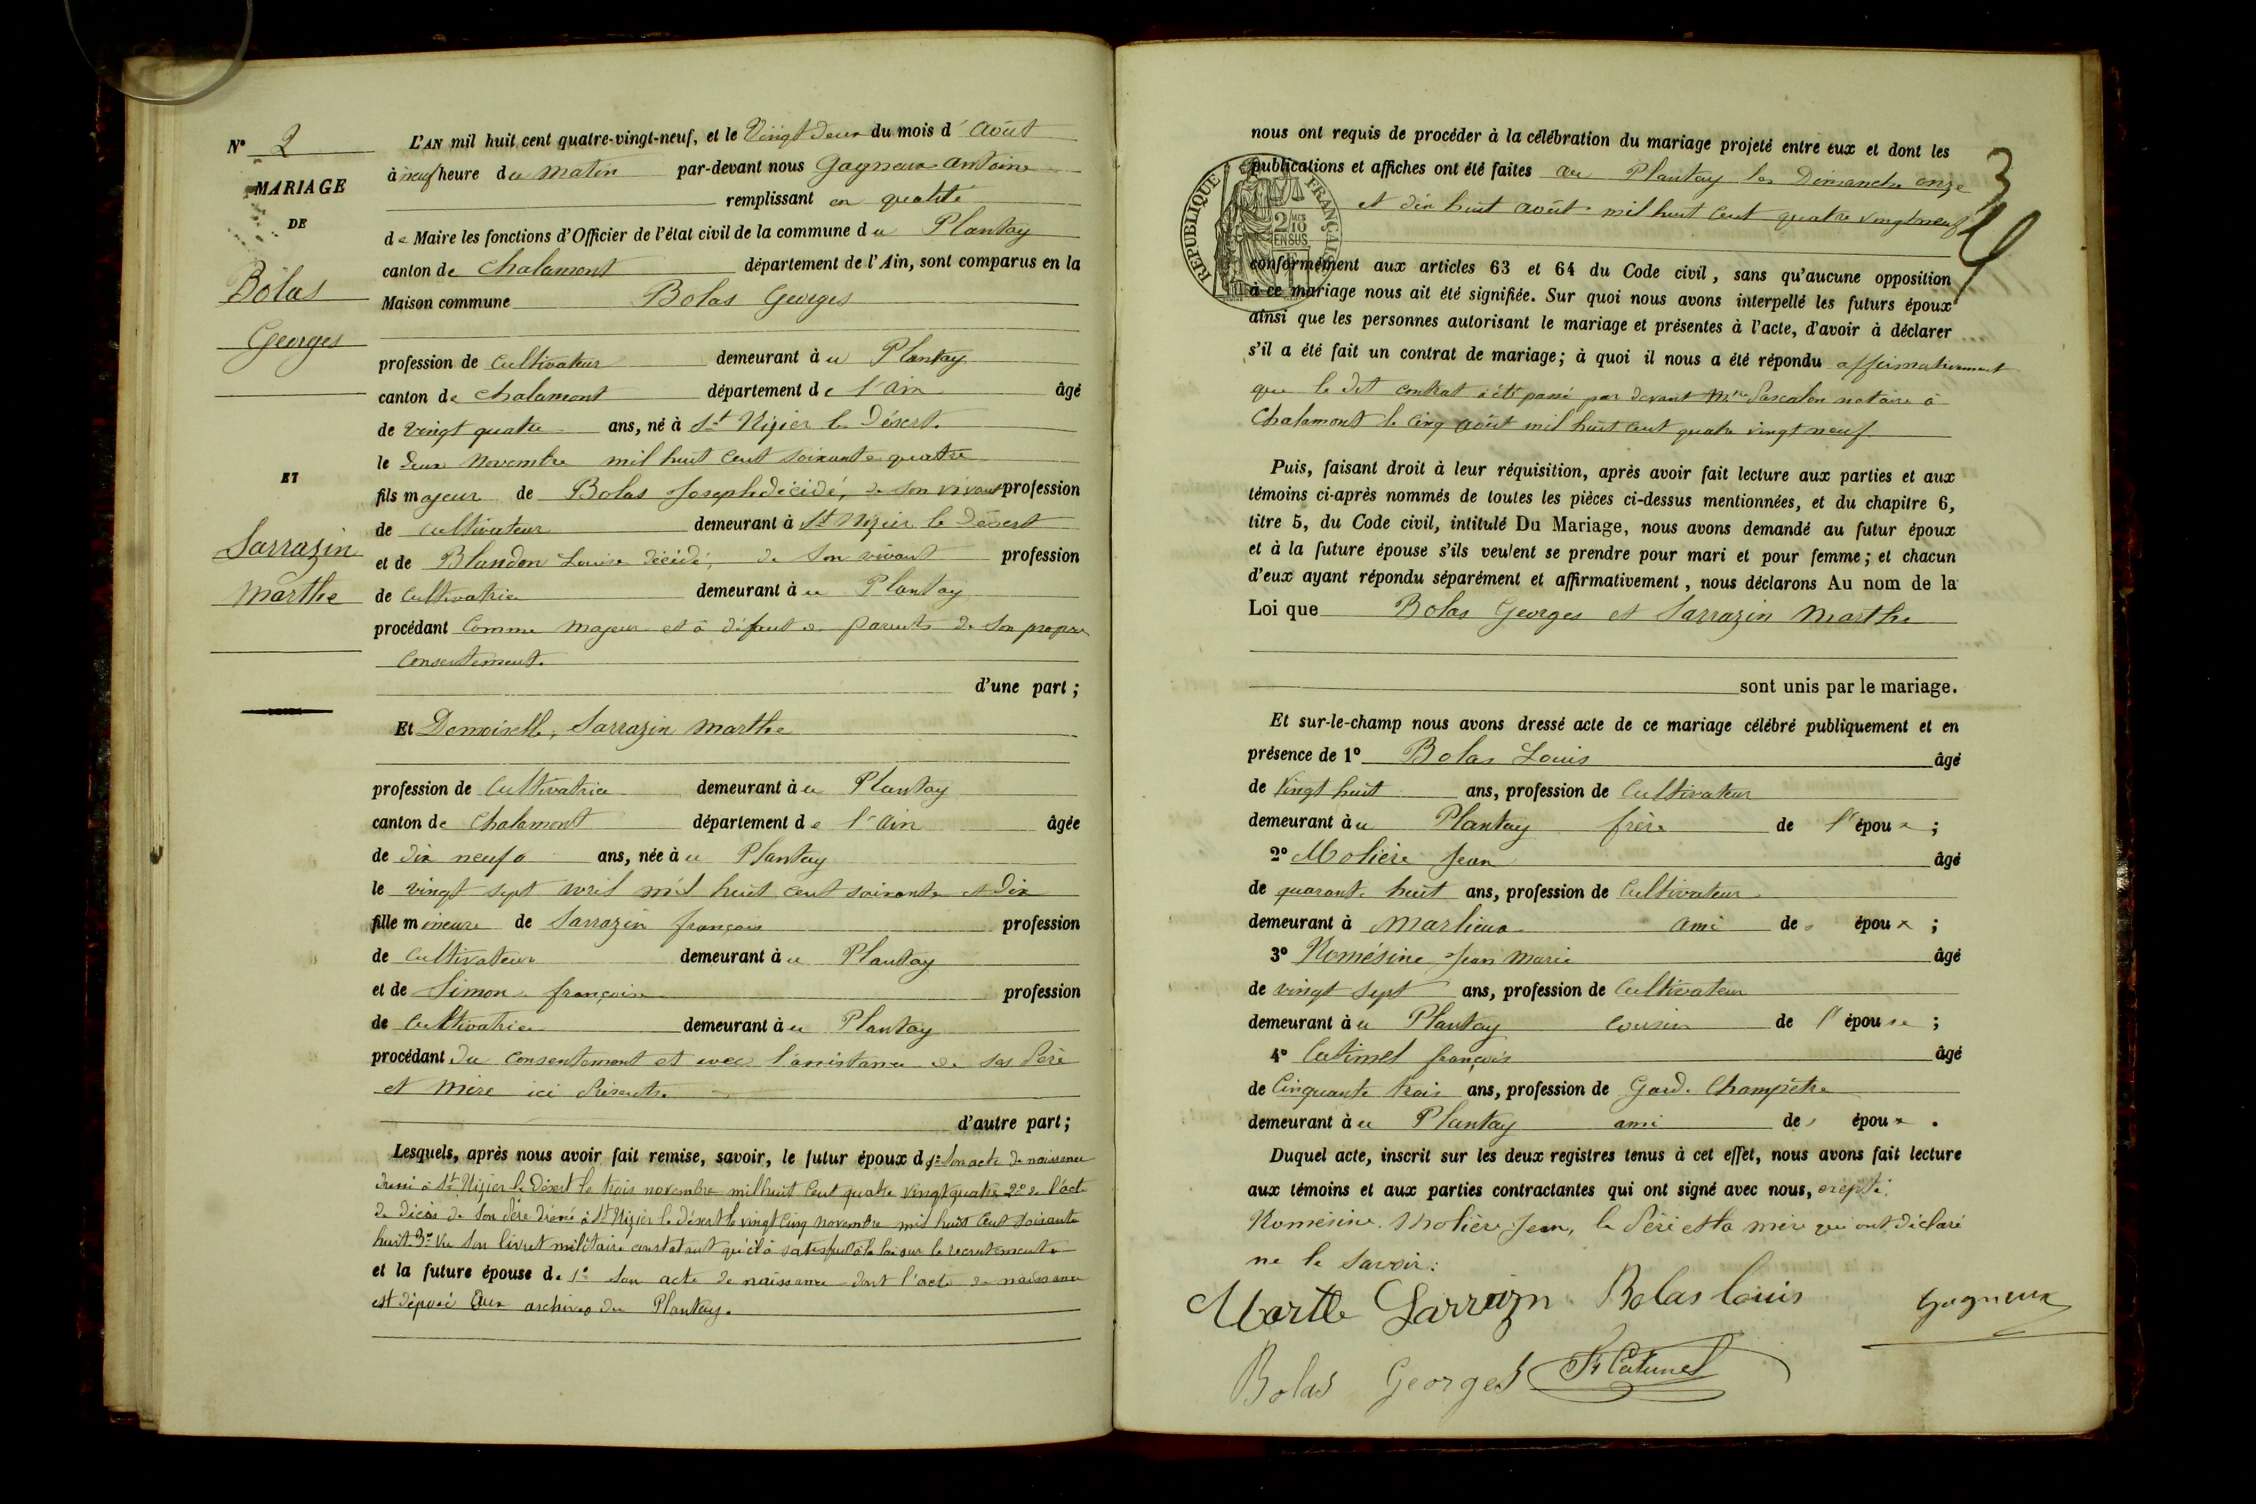 N° 2
MARIAGE
DE
Bolas
Georges
ET
Sarrazin
Marthe
L'AN mil huit cent quatre-vingt-neuf, et le Vingt deux du mois d' Août
à neuf heure du matin par-devant nous Gagneux Antoine
remplissant en qualité
de Maire les fonctions d'Officier de l'état civil de la commune du Plantay
canton de Chalamont département de l'Ain, sont comparus en la
Maison commune Bolas Georges
profession de Cultivateur demeurant à u Plantay
canton de Chalamont département de l'ain âgé
de vingt quatre ans, né à St Nizier le Désert
le deux Novembre mil huit cent soixante quatre
fils majeur de Bolas Joseph décidé, de son vivant profession
de Cultivateur demeurant à St Nizier le Désert
et de Blandon Louise décidé, de son vivant profession
de Cultivatrice demeurant à u Plantay
procédant Comme majeur et à défaut de parents de son propre
Consentement.
d'une part ;
Et Demoiselle, Sarrazin Marthe
profession de Cultivatrice demeurant à u Plantay
canton de Chalamont département de l'ain âgée
de dix neuf ans, née à u Plantay
le vingt sept avril mil huit cent soixante et Dix
fille mineure de Sarrazin françois profession
de Cultivateur demeurant à u Plantay
et de Simon françoise profession
de Cultivatrice demeurant à u Plantay
procédant du consentement et avec l'assistance de ses Père
et Mère ici Présents.
d'autre part ;
Lesquels, après nous avoir fait remise, savoir, le futur époux d 1° Son acte de naissance
dressé à St Nizier le Désert le trois novembre mil huit Cent quatre vingt quatre 2° de l'acte
de décès de son Père dressé à St Nizier le Désert le vingt cinq novembre mil huit Cent Soixante
huit 3° Vu son livret militaire constatant qu'il à satisfait à la loi sur le recrutement
et la future épouse de 1° son acte de naissance dont l'acte de naissance
est déposé aux archives du Plantay.
RÉPUBLIQUE FRANÇAISE
2/10
EN SUS
3
nous ont requis de procéder à la célébration du mariage projeté entre eux et dont les
publications et affiches ont été faites au Plantay les Dimanche onze
et dix huit août mil huit Cent quatre vingt neuf
conformément aux articles 63 et 64 du Code civil, sans qu'aucune opposition
à ce mariage nous ait été signifiée. Sur quoi nous avons interpellé les futurs époux
ainsi que les personnes autorisant le mariage et présentes à l'acte, d'avoir à déclarer
s'il a été fait un contrat de mariage ; à quoi il nous a été répondu affirmativement
que le dit contrat à été passé par devant Mtre Pascalon notaire à
Chalamont le Cinq août mil huit Cent quatre vingt neuf
Puis, faisant droit à leur réquisition, après avoir fait lecture aux parties et aux
témoins ci-après nommés de toutes les pièces ci-dessus mentionnées, et du chapitre 6,
titre 5, du Code civil, intitulé Du Mariage, nous avons demandé au futur époux
et à la future épouse s'ils veulent se prendre pour mari et pour femme ; et chacun
d'eux ayant répondu séparément et affirmativement, nous déclarons Au nom de la
Loi que Bolas Georges et Sarrazin Marthe
sont unis par le mariage.
Et sur-le-champ nous avons dressé acte de ce mariage célébré publiquement et en
présence de 1° Bolas Louis âgé
de Vingt huit ans, profession de Cultivateur
demeurant à u Plantay frère de l'époux ;
2° Molière Jean âgé
de quarante huit ans, profession de Cultivateur
demeurant à Marlieux ami des époux ;
3° Romésine Jean Marie âgé
de vingt sept ans, profession de Cultivateur
demeurant à u Plantay Cousin de l'épouse ;
4° Catimel françois âgé
de Cinquante trois ans, profession de Garde Champêtre
demeurant à u Plantay ami des époux .
Duquel acte, inscrit sur les deux registres tenus à cet effet, nous avons fait lecture
aux témoins et aux parties contractantes qui ont signé avec nous, excepté
Romésine, Molière Jean, le Père et la mère qui ont déclaré
ne le Savoir :
Marthe Sarrazin Bolas Louis Gagneux
Bolas Georges Fs Catimel